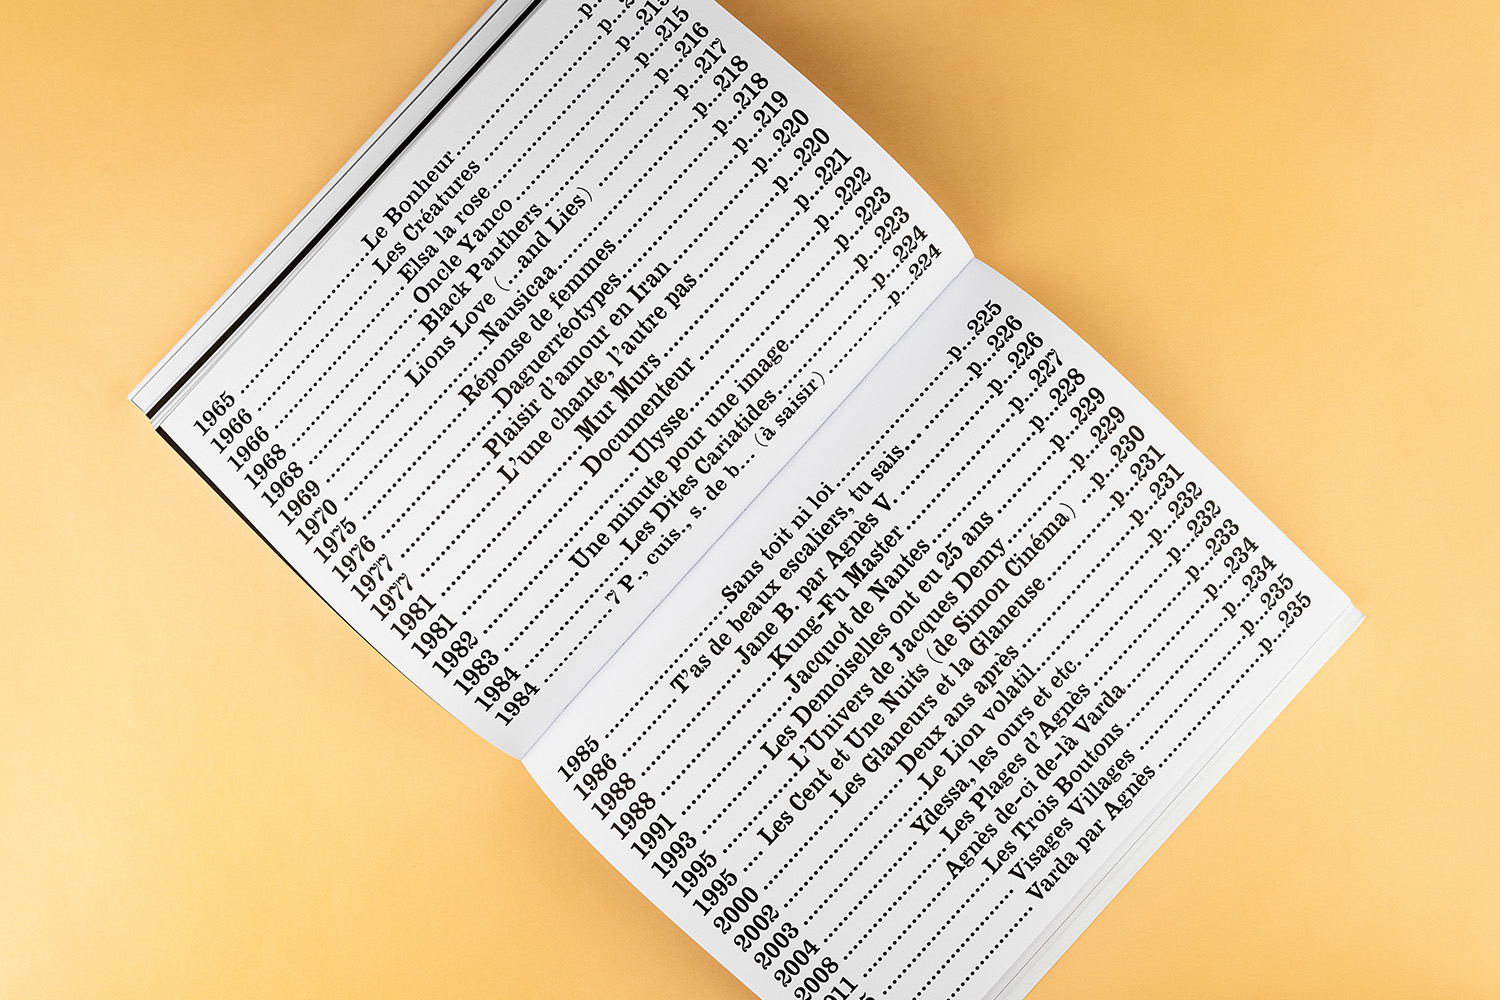 1965 Le Bonheur p...
1966 Les Créatures p...
1966 Elsa la rose p...215
1968 Oncle Yanco p...215
1968 Black Panthers p...216
1969 Lions Love (...and Lies) p...217
1970 Nausicaa p...218
1975 Réponse de femmes p...218
1976 Daguerréotypes p...219
1977 Plaisir d'amour en Iran p...220
1977 L'une chante, l'autre pas p...220
1981 Mur Murs p...221
1981 Documenteur p...222
1982 Ulysse p...223
1983 Une minute pour une image p...223
1984 Les Dites Cariatides p...224
1984 7 P., cuis., s. de b... (à saisir) p...224
1985 Sans toit ni loi p...225
1986 T'as de beaux escaliers, tu sais... p...226
1988 Jane B. par Agnès V. p...226
1988 Kung-Fu Master p...227
1991 Jacquot de Nantes p...228
1993 Les Demoiselles ont eu 25 ans p...229
1995 L'Univers de Jacques Demy p...229
1995 Les Cent et Une Nuits (de Simon Cinéma) p...230
2000 Les Glaneurs et la Glaneuse p...231
2002 Deux ans après p...231
2003 Le Lion volatil p...232
2004 Ydessa, les ours et etc. p...232
2008 Les Plages d'Agnès p...233
011 Agnès de-ci de-là Varda p...234
Les Trois Boutons p...234
Visages Villages p...235
Varda par Agnès p...235